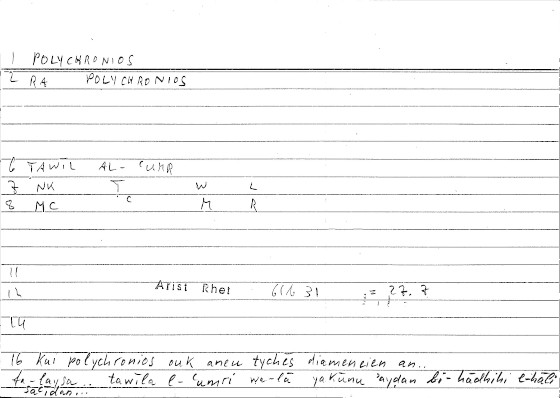 1 POLYCHRONIOS
2 RA POLYCHRONIOS
6 TAWĪL AL-ʿUMR
7 NK Ṭ W L
8 MC ʿ M R
11
12 Arist Rhet 61b 31 = 27. 7
14
16 Kai polychronios ouk aneu tychēs diameneien an..
fa-laysa.. tawīla l-ʿumri wa-lā yakūnu ʾayḍan bi-hādhihi l-ḥāli
saʿīdan...